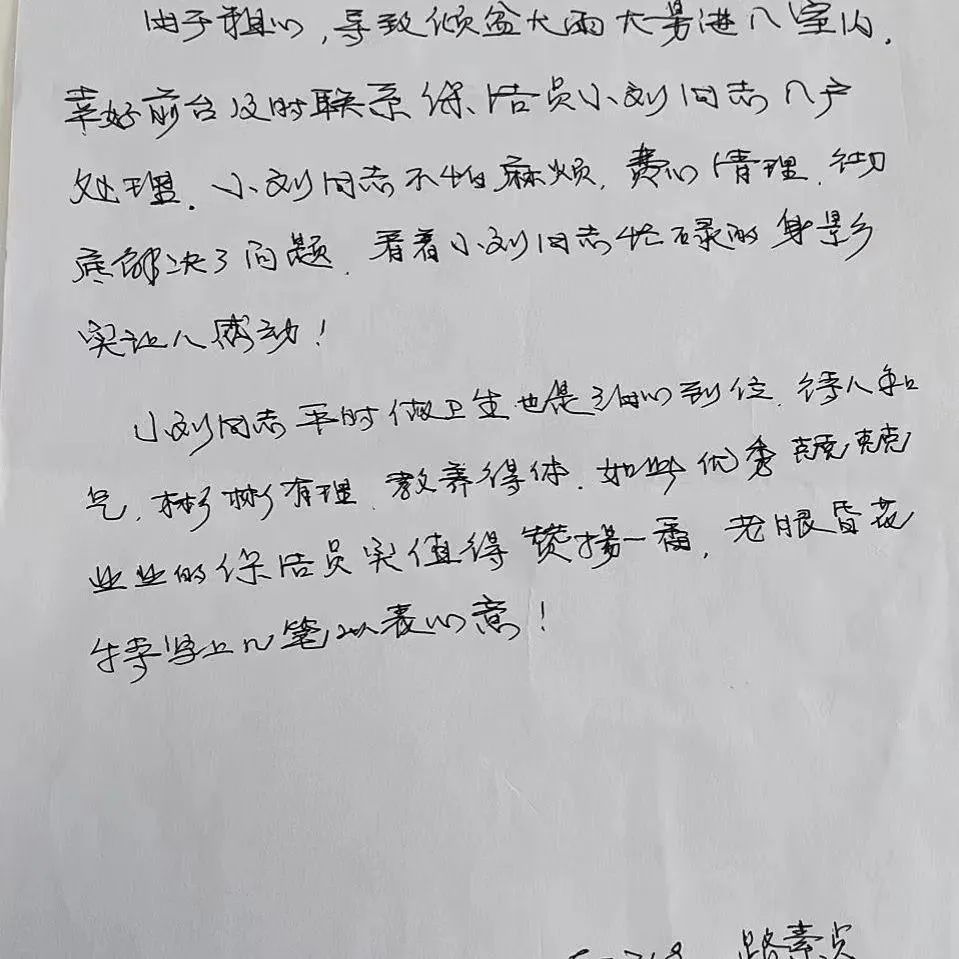 由于粗心，导致倾盆大雨大量进入室内，
幸好前台及时联系保洁员小刘同志入户
处理。小刘同志不怕麻烦，费心清理，彻
底解决了问题，看着小刘同志忙碌的身影
实让人感动！
小刘同志平时做卫生也是细心到位，待人和
气，彬彬有理，教养得体，如此优秀兢兢
业业的保洁员实值得赞扬一番，老眼昏花
特写上几笔以表心意！
路素贞